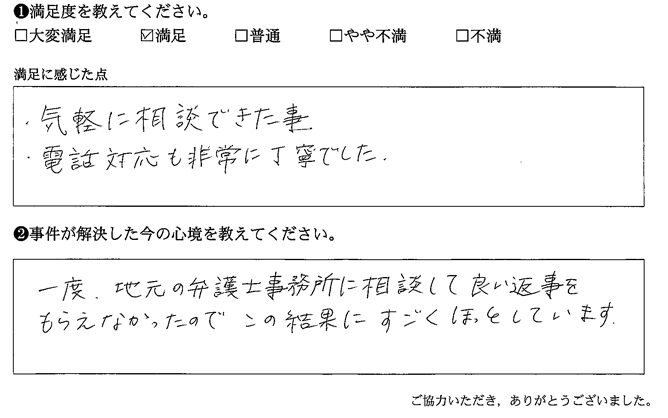 ❶満足度を教えてください。
□大変満足 ☑満足 □普通 □やや不満 □不満
満足に感じた点
・気軽に相談できた事
・電話対応も非常に丁寧でした.
❷事件が解決した今の心境を教えてください。
一度、地元の弁護士事務所に相談して良い返事を
もらえなかったので この結果に すごくほっとしています.
ご協力いただき，ありがとうございました。